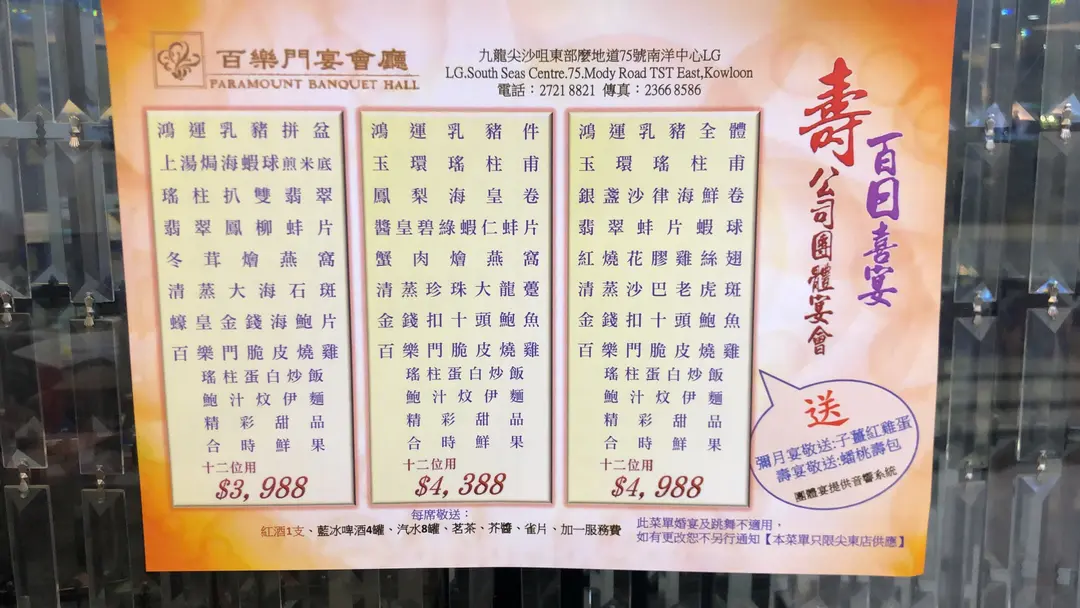 百樂門宴會廳
PARAMOUNT BANQUET HALL
九龍尖沙咀東部麼地道75號南洋中心LG
LG.South Seas Centre.75.Mody Road TST East,Kowloon
電話：2721 8821 傳真：2366 8586
鴻運乳豬拼盆
上湯焗海蝦球煎米底
瑤柱扒雙翡翠
翡翠鳳柳蚌片
冬茸燴燕窩
清蒸大海石斑
蠔皇金錢海鮑片
百樂門脆皮燒雞
瑤柱蛋白炒飯
鮑汁炆伊麵
精彩甜品
合時鮮果
十二位用
$3,988
鴻運乳豬件
玉環瑤柱甫
鳳梨海皇卷
醬皇碧綠蝦仁蚌片
蟹肉燴燕窩
清蒸珍珠大龍躉
金錢扣十頭鮑魚
百樂門脆皮燒雞
瑤柱蛋白炒飯
鮑汁炆伊麵
精彩甜品
合時鮮果
十二位用
$4,388
鴻運乳豬全體
玉環瑤柱甫
銀盞沙律海鮮卷
翡翠蚌片蝦球
紅燒花膠雞絲翅
清蒸沙巴老虎斑
金錢扣十頭鮑魚
百樂門脆皮燒雞
瑤柱蛋白炒飯
鮑汁炆伊麵
精彩甜品
合時鮮果
十二位用
$4,988
百日喜宴
壽
公司團體宴會
送
彌月宴敬送:子薑紅雞蛋
壽宴敬送:蟠桃壽包
團體宴提供音響系統
每席敬送：
紅酒1支、藍冰啤酒4罐、汽水8罐、茗茶、芥醬、雀片、加一服務費
此菜單婚宴及跳舞不適用，
如有更改恕不另行通知【本菜單只限尖東店供應】